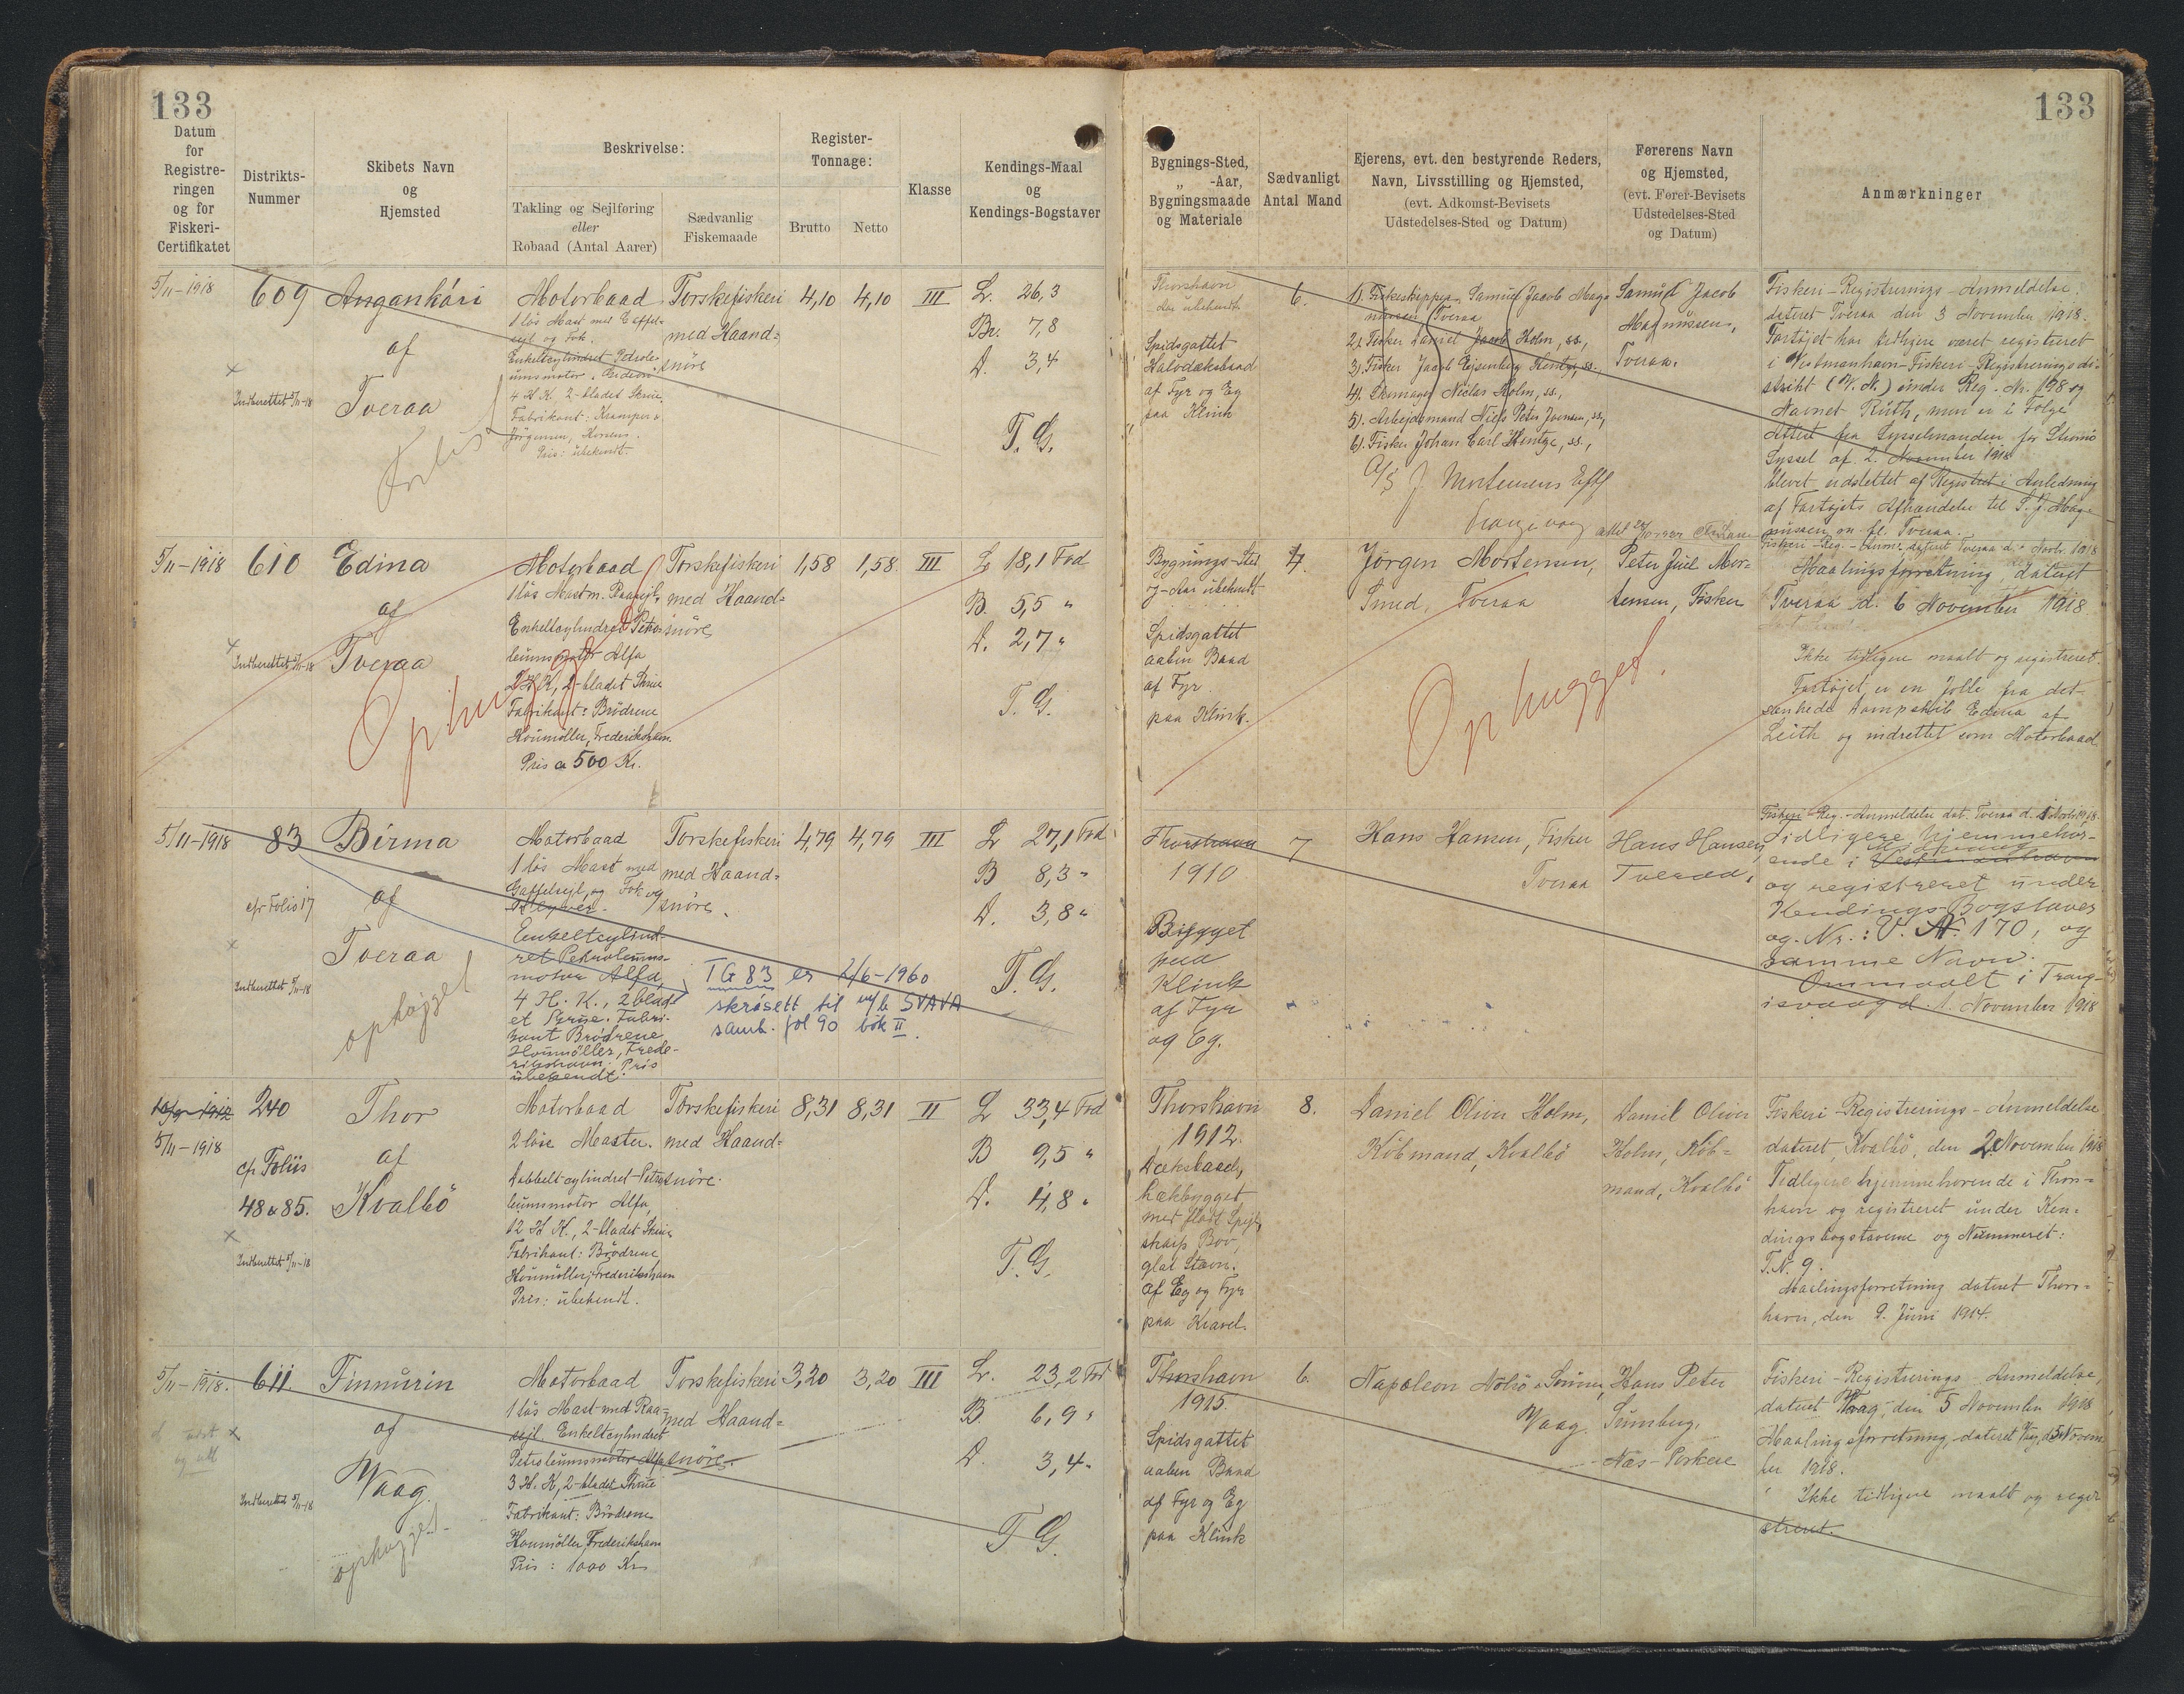 133
Datum
for
Registre-
ringen
og for
Fiskeri-
Certifikatet
Distrikts-
Nummer
Skibets Navn
og
Hjemsted
Beskrivelse:
Takling og Sejlføring
eller
Robaad (Antal Aarer)
Sædvanlig
Fiskemaade
Register-
Tonnage:
Brutto Netto
Klasse
Kendings-Maal
og
Kendings-Bogstaver
133
Bygnings-Sted,
„ -Aar,
Bygningsmaade
og Materiale
Sædvanligt
Antal Mand
Ejerens, evt. den bestyrende Reders,
Navn, Livsstilling og Hjemsted,
(evt. Adkomst-Bevisets
Udstedelses-Sted og Datum)
Førerens Navn
og Hjemsted,
(evt. Fører-Bevisets
Udstedelses-Sted
og Datum)
Anmærkninger
5/11-1918
609
Indberettet 5/11-18
Angankári
af
Tveraa
Forlist
Motorbaad
1 løs Mast med Gaffel-
sejl og Fok.
Enkeltcylindret Petrole-
umsmotor, "Gideon"
4 H.K. 2-bladet Skrue,
Fabrikant: Kramper &
Jørgensen, Horsens.
Pris: ubekendt.
Torskefiskeri
med Haand-
snöre
4,10 4,10 III
L. 26,3
Br. 7,8
D. 3,4
T. G.
Thorshavn
Aar ubekendt.
Spidsgattet
Halvdæksbaad
af Fyr og Eg
paa Klink
6.
1). Fiskeskipper Samuel Jacob Mag-
nussen, Tveraa
2). Fisker Daniel Jacob Holm, ss.,
3). Fisker Jacob Ejsenberg Kentze, ss.,
4). Skomager Niclas Holm, ss.,
5). Arbejdsmand Niels Peter Joensen, ss.,
6). Fisker Johan Carl Kentze, ss.,
A/S J Mortensens Eftf
Samuel Jacob
Magnussen,
Tveraa.
Fiskeri-Registrerings-Anmeldelse.
dateret Tveraa den 3 November 1918.
Fartøjet har tidligere været registreret
i Vestmanhavn Fiskeri-Registrerings di-
strikt (V.N.) under Reg. Nr. 198 og
Navnet Ruth, men er i Følge
Attest fra Sysselmanden for Strømø
Syssel af 2. November 1918
blevet udslettet af Registret i Anledning
af Fartøjets Afhændelse til S. J. Mag-
nussen m. fl. Tveraa.
5/11-1918
610
Indberettet 5/11-18
Edina
af
Tveraa
Ophugget
Motorbaad
1 løs Mast m. Raasejl,
Enkeltcylindret Petro-
leumsmotor Alfa
2 H.K, 2-bladet Skrue
Fabrikant: Brødrene
Houmøller, Frederikshavn
Pris a 500 Kr.
Torskefiskeri
med Haand-
snöre,
1,58 1,58. III
L 18,1 Fod
B. 5,5 "
D. 2,7 "
T. G.
Bygnings-Sted
og-Aar ubekendt
Spidsgattet
aaben Baad
af Fyr
paa Klink.
4.
Jørgen Mortensen,
Smed, Tveraa
Ophugget.
Peter Juel Mor-
tensen, Fisker
Fiskeri-Reg.-Anm., dateret Tveraa d. Novbr. 1918
Maalingsforretning, dateret
Tveraa d. 6 November 1918
Ikke tidligere maalt og registreret.
Fartøjet er en Jolle fra det
sænkede Dampskib Edina af
Leith og indrettet som Motorbaad.
5/11-1918
83
cfr Folio 17
Indberettet 5/11-18
Birma
af
Tveraa
ophøjget
Motorbaad
1 løs Mast med
Gaffelsejl, og Fok og
Klyver.
Enkeltcylind-
ret Petroleums-
motor Alfa,
4 H. K., 2 blad-
et Skrue. Fabri-
kant Brødrene
Houmøller, Frede-
rikshavn. Pris
ubekendt.
Torskefiskeri
med Haand-
snöre.
TG 83 er 2/6-1960
skrásett til m/b SVAVA
samb. fol 90 bók II.
4,79 4,79 III
L 27,1 Fod
B 8,3 "
D. 3,8 "
T. G.
Thorshavn
1910
Bygget
paa
Klink
af Fyr
og Eg.
7
Hans Hansen, Fisker
Tveraa
Hans Hansen,
Tveraa.
Fiskeri Reg.-Anmeldelse dat. Tveraa d. 1 Novbr 1918.
Tidligere hjemmehør-
ende i Vestmanhavn
og registreret under
Kendings-Bogstaver
og Nr.: V. N. 170, og
samme Navn.
Ommaalt i Trang-
isvaag d. 1. November 1918
5/11-1918
240
cfr Foliis
48 & 85.
Indberettet 5/11-18
Thor
af
Kvalbö
Motorbaad
2 løse Master.
Dobbelt-cylindret-Petro-
leumsmotor Alfa,
12 H K., 2-bladet Skrue
Fabrikant: Brødrene
Houmøller, Frederikshavn
Pris: ubekendt.
Torskefiskeri
med Haand-
snöre.
8,31 8,31 II
L 33,4 Fod
B 9,5 "
D. 4,8 "
T. G.
Thorshavn
1912.
Dæksbaad,
hækbygget
med fladt Spejl,
skarp Bov,
glat Stævn.
af Eg og Fyr
paa Kravel.
8.
Daniel Oliver Holm,
Købmand, Kvalbö
Daniel Oliver
Holm, Køb-
mand, Kvalbö
Fiskeri-Registrerings-Anmeldelse
dateret, Kvalbö, den 2 November 1918
Tidligere hjemmehørende i Thors-
havn og registreret under Ken-
dingsbogstaverne og Nummeret:
T.N. 9.
Maalingsforretning dateret Thors-
havn, den 9. Juni 1914.
5/11-1918.
611.
Indberettet 5/11-18
Finnurin
af
Waag.
ophøjget
Motorbaad
1 løs Mast med Raa-
sejl. Enkeltcylindret
Petroleumsmotor Alfa
3 H. K, 2-bladet Skrue
Fabrikant: Brødrene
Houmøller, Frederikshavn
Pris: 1000 Kr
Torskefiskeri
med Haand-
snöre.
3,20 3,20 III
L. 23,2 Fod
B. 6,9 "
D. 3,4 "
T G.
Thorshavn
1915.
Spidsgattet
aaben Baad
af Fyr og Eg
paa Klink
6.
Napoleon Nolsö & Sönner,
Waag.
Hans Peter
Sumberg,
Næs-Porkere
Fiskeri-Registrerings-Anmeldelse,
dateret Waag, den 5 November 1918
Maalingsforretning, dateret Vaag, d 5 Novem-
ber 1918.
Ikke tidligere maalt og regi-
streret.